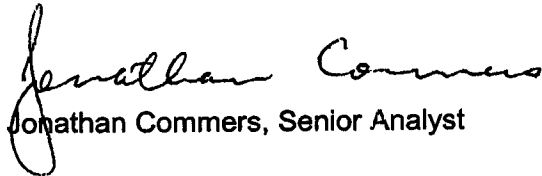 Jonathan Commers
Jonathan Commers, Senior Analyst